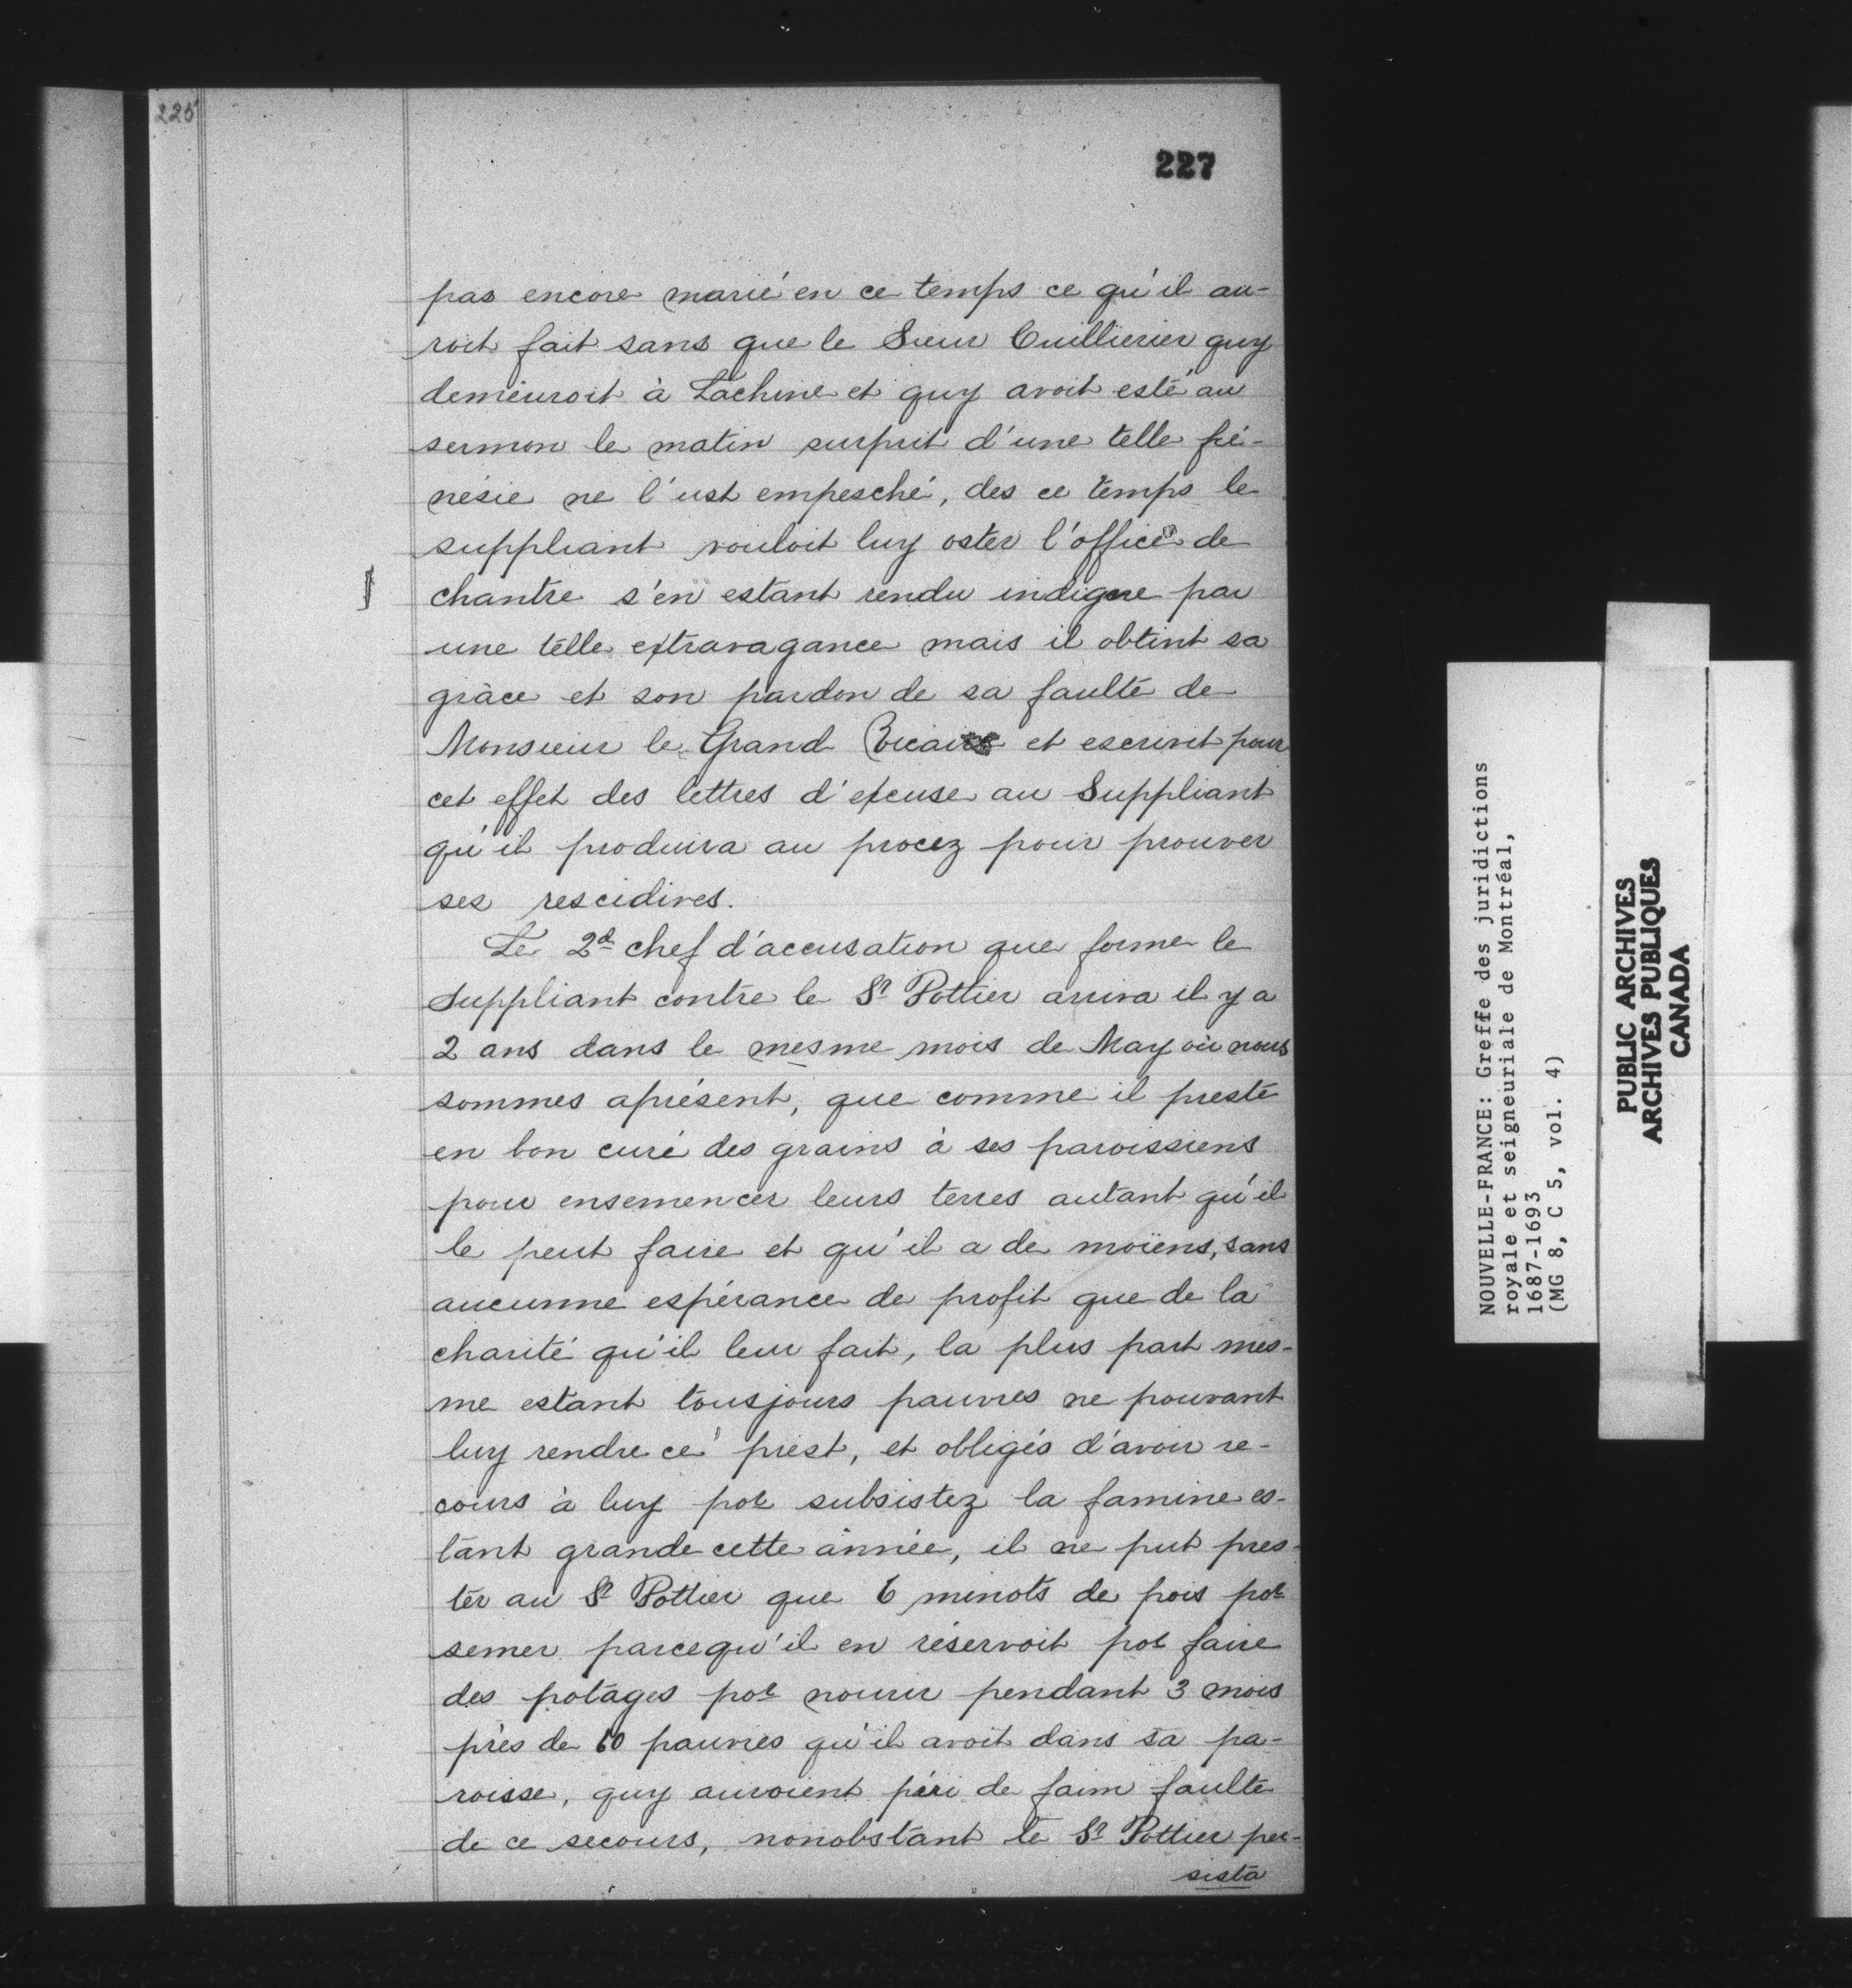 225
227
pas encore marié en ce temps ce qu'il au-
roit fait sans que le Sieur Cuillierier quy
demeuroit à Lachine et quy avoit esté au
sermon le matin surprit d'une telle fré-
nésie ne l'ust empesché, des ce temps le
suppliant vouloit luy oster l'office de
chantre s'en estant rendu indigne par
une telle extravagance mais il obtint sa
grâce et son pardon de sa faulte de
Monsieur le Grand Vicaire et escrivit pour
cet effet des lettres d'excuse au Suppliant
qu'il produira au procez pour prouver
ses rescidives.
Le 2d chef d'accusation que forme le
suppliant contre le Sr Pottier arriva il y a
2 ans dans le mesme mois de May où nous
sommes aprésent, que comme il preste
en bon curé des grains à ses paroissiens
pour ensemencer leurs terres autant qu'il
le peut faire et qu'il a de moïens, sans
aucunne espérance de profit que de la
charité qu'il leur fait, la plus part mes-
me estant tousjours pauvres ne pouvant
luy rendre ce prest, et obligés d'avoir re-
cours à luy por subsistez la famine es-
tant grande cette année, il ne put pres-
ter au Sr Pottier que 6 minots de pois por
semer parcequ'il en réservoit por faire
des potages por nourir pendant 3 mois
près de 60 pauvres qu'il avoit dans sa pa-
roisse, quy auroient péri de faim faulte
de ce secours, nonobstant le Sr Pottier per-
sista
NOUVELLE-FRANCE: Greffe des juridictions
royale et seigneuriale de Montréal,
1687-1693
(MG 8, C 5, vol. 4)
PUBLIC ARCHIVES
ARCHIVES PUBLIQUES
CANADA